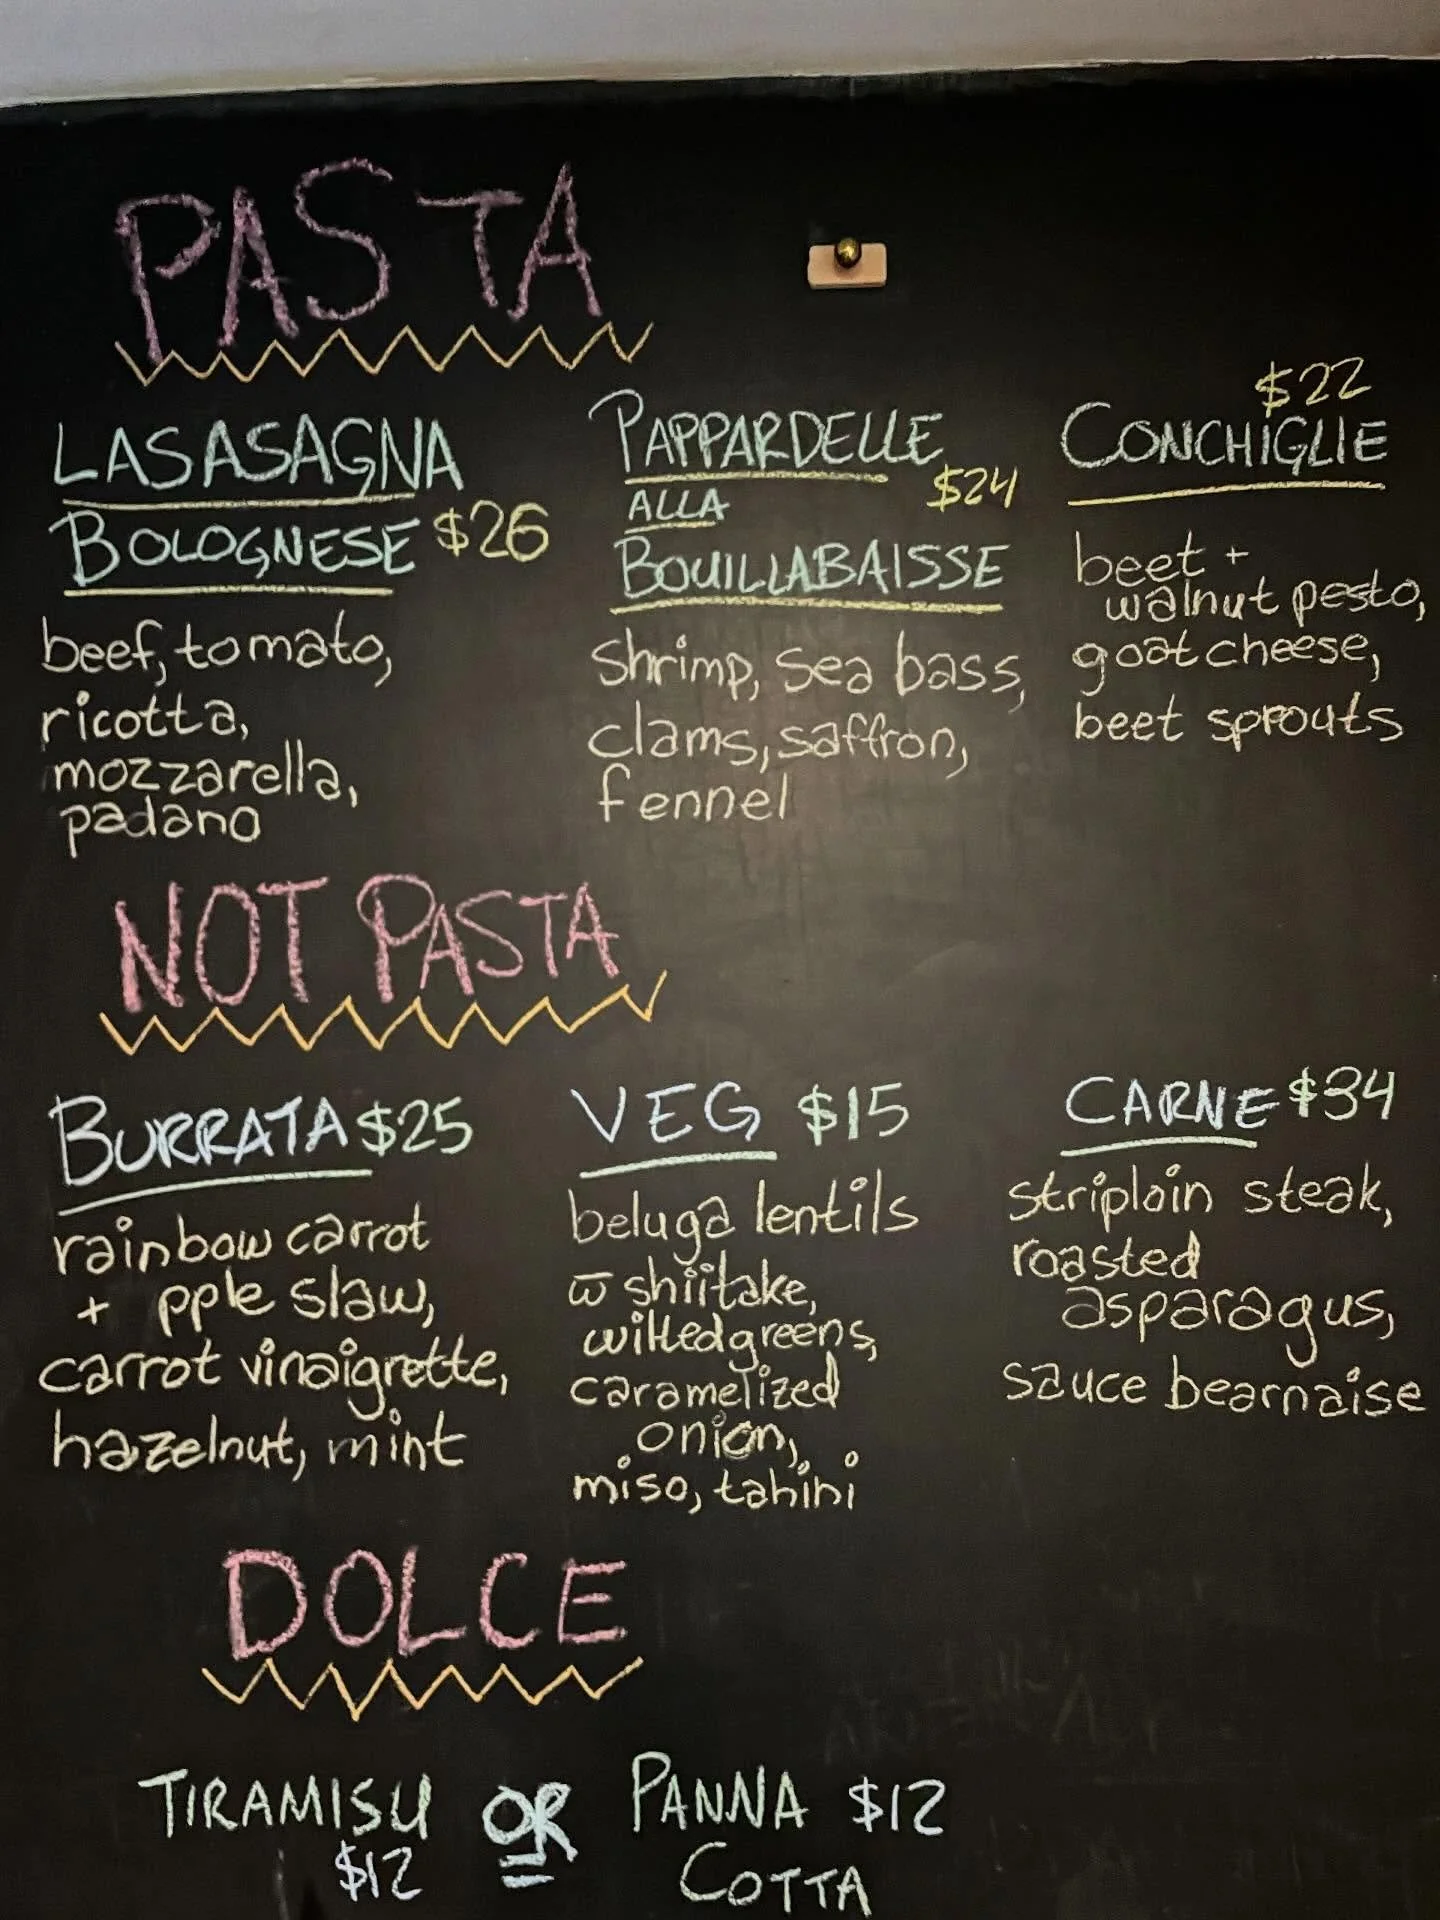 PASTA
LASASAGNA
BOLOGNESE $26
beef, tomato,
ricotta,
mozzarella,
padano
PAPPARDELLE
$24
ALLA
BOUILLABAISSE
shrimp, sea bass,
clams, saffron,
fennel
$22
CONCHIGLIE
beet +
walnut pesto,
goat cheese,
beet sprouts
NOT PASTA
BURRATA $25
rainbow carrot
+ pple slaw,
carrot vinaigrette,
hazelnut, mint
VEG $15
beluga lentils
w̅ shiitake,
wilted greens,
caramelized
onion,
miso, tahini
CARNE $34
striploin steak,
roasted
asparagus,
sauce bearnaise
DOLCE
TIRAMISU OR PANNA $12
$12 COTTA